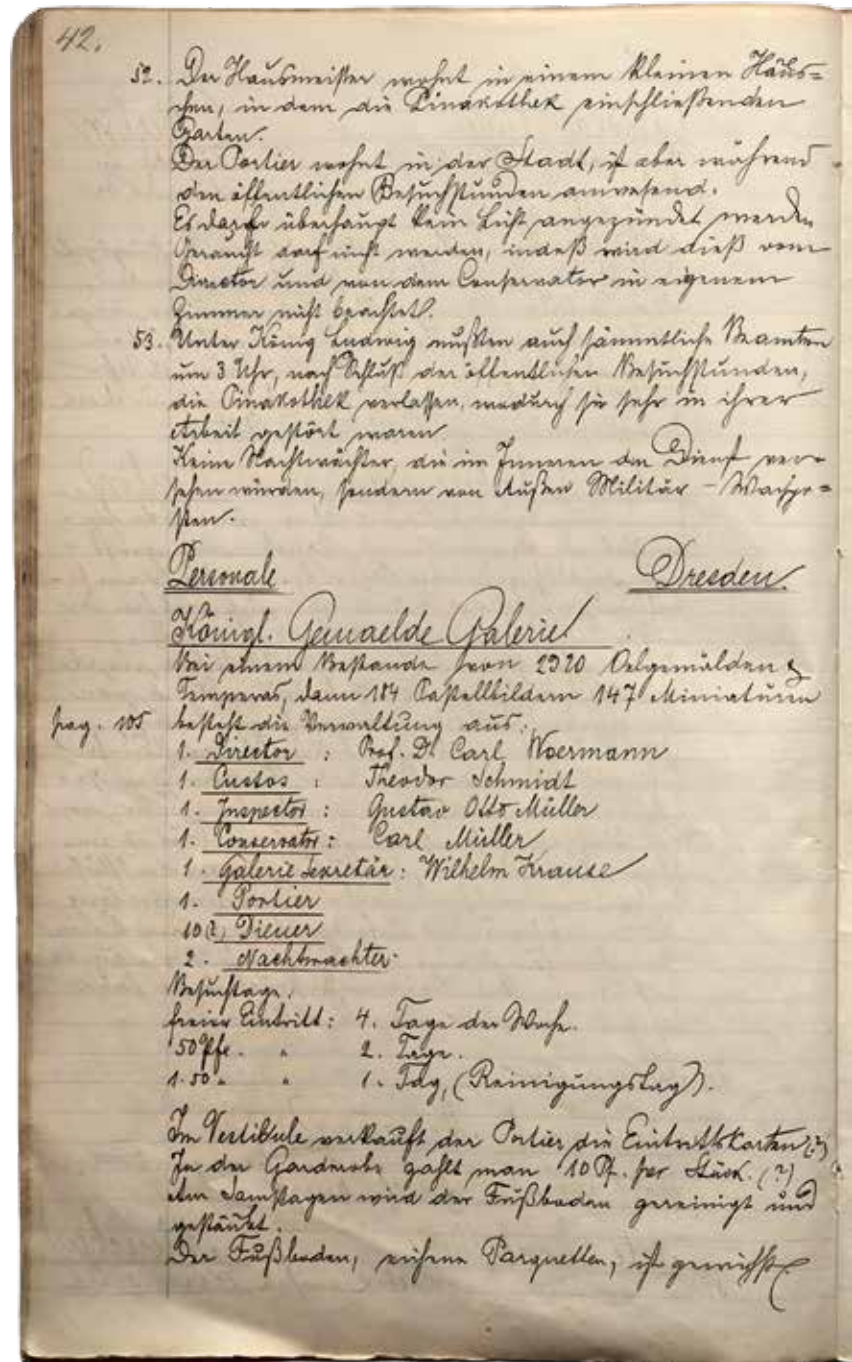 42.
52. Der Hausmeister wohnt in einem kleinen Häus=
chen, in dem die Pinakothek einschließenden
Garten.
Der Portier wohnt in der Stadt, ist aber während
den öffentlichen Besuchsstunden anwesend.
Es darf überhaupt kein Licht angezündet werden
Geraucht darf nicht werden, indeß wird dieß vom
Director und von dem Conservator in eigenem
Zimmer nicht beachtet.
53. Unter König Ludwig mußten auch sämmtliche Beamten
um 3 Uhr, nach Schluß der öffentlichen Besuchsstunden,
die Pinakothek verlassen, wodurch sie sehr in ihrer
Arbeit gestört waren
Keine Nachtwächter, die im Inneren den Dienst ver=
sehen würden, sondern von Außen Militär - Wachpo=
sten.
Personale Dresden
Königl. Gemaelde Galerie
Bei einem Bestande von 2320 Oelgemälden &
Temperas, dann 184 Pastellbildern 147 Miniaturen
pag. 105 besteht die Verwaltung aus:
1. Director : Prof. Dr. Carl Woermann
1. Custos : Theodor Schmidt
1. Inspector : Gustav Otto Müller
1. Conservator : Carl Müller
1. Galerie Secretär : Wilhelm Krause
1. Portier
10 (?) Diener
2. Nachtwächter.
Besuchstage.
freier Eintritt : 4. Tage der Woche.
50 Pfe. " 2. Tage.
1.50 " " 1. Tag, (Reinigungstag).
Im Vestibule verkauft der Portier die Eintrittskarten (?)
In der Garderobe zahlt man 10 Pf. per Stück. (?)
Am Samstagen wird der Fußboden gereinigt und
gestäubt.
Der Fußboden, eichene Parquetten, ist gewichst.